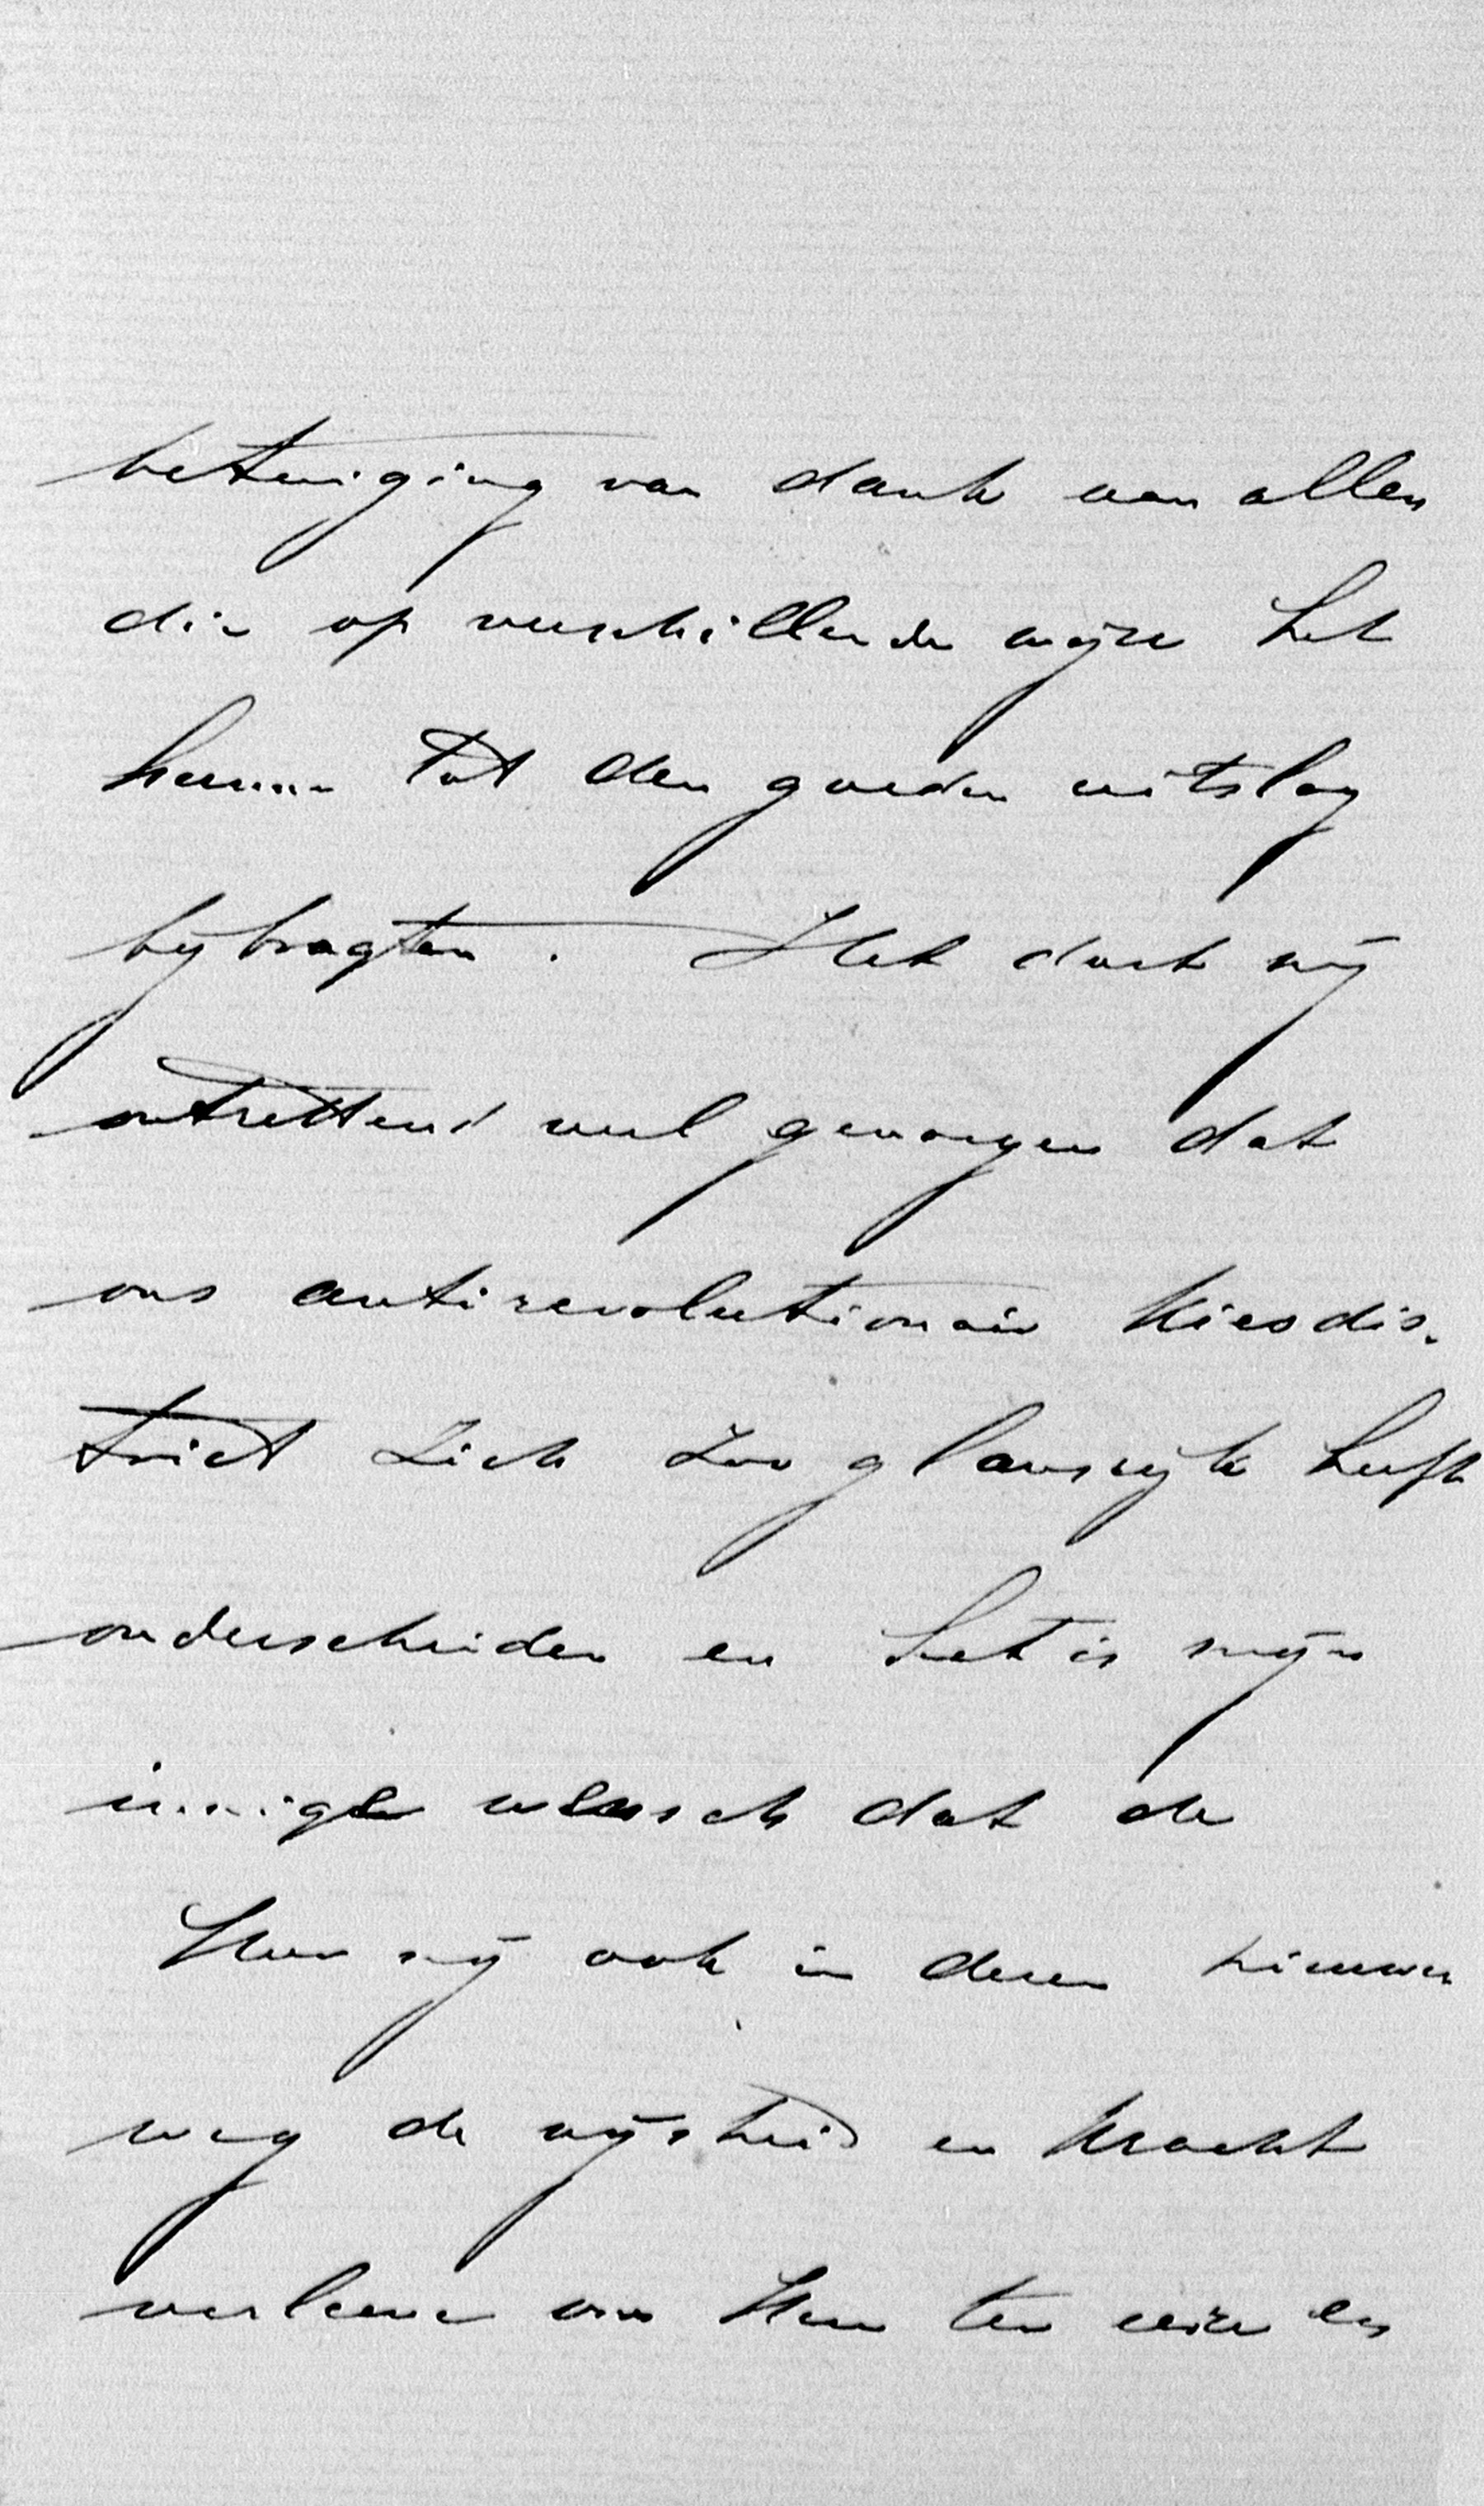 betuiging van dank aan allen
die op verschillende wijze het
hunne tot den goeden uitslag
bijbragten. Het doet mij
ontzettend veel genoegen dat
ons antirevolutionair kiesdis-
trict zich zoo glansrijk heeft
onderscheiden en het is mijn
innige wensch dat de
Heer mij ook in dezen nieuwen
weg de wijsheid en kracht
verleene om Hem ter eere en